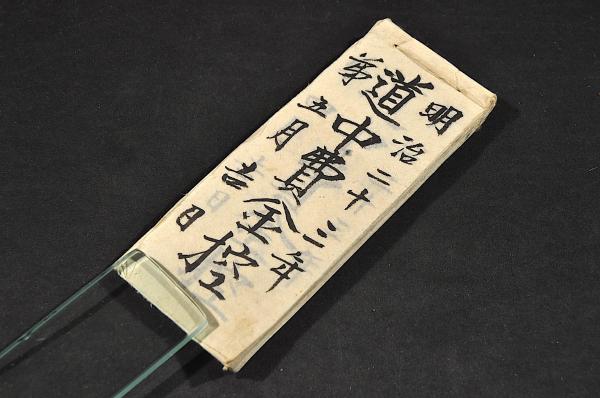 明治二十三年
道中費金控
第五月吉日